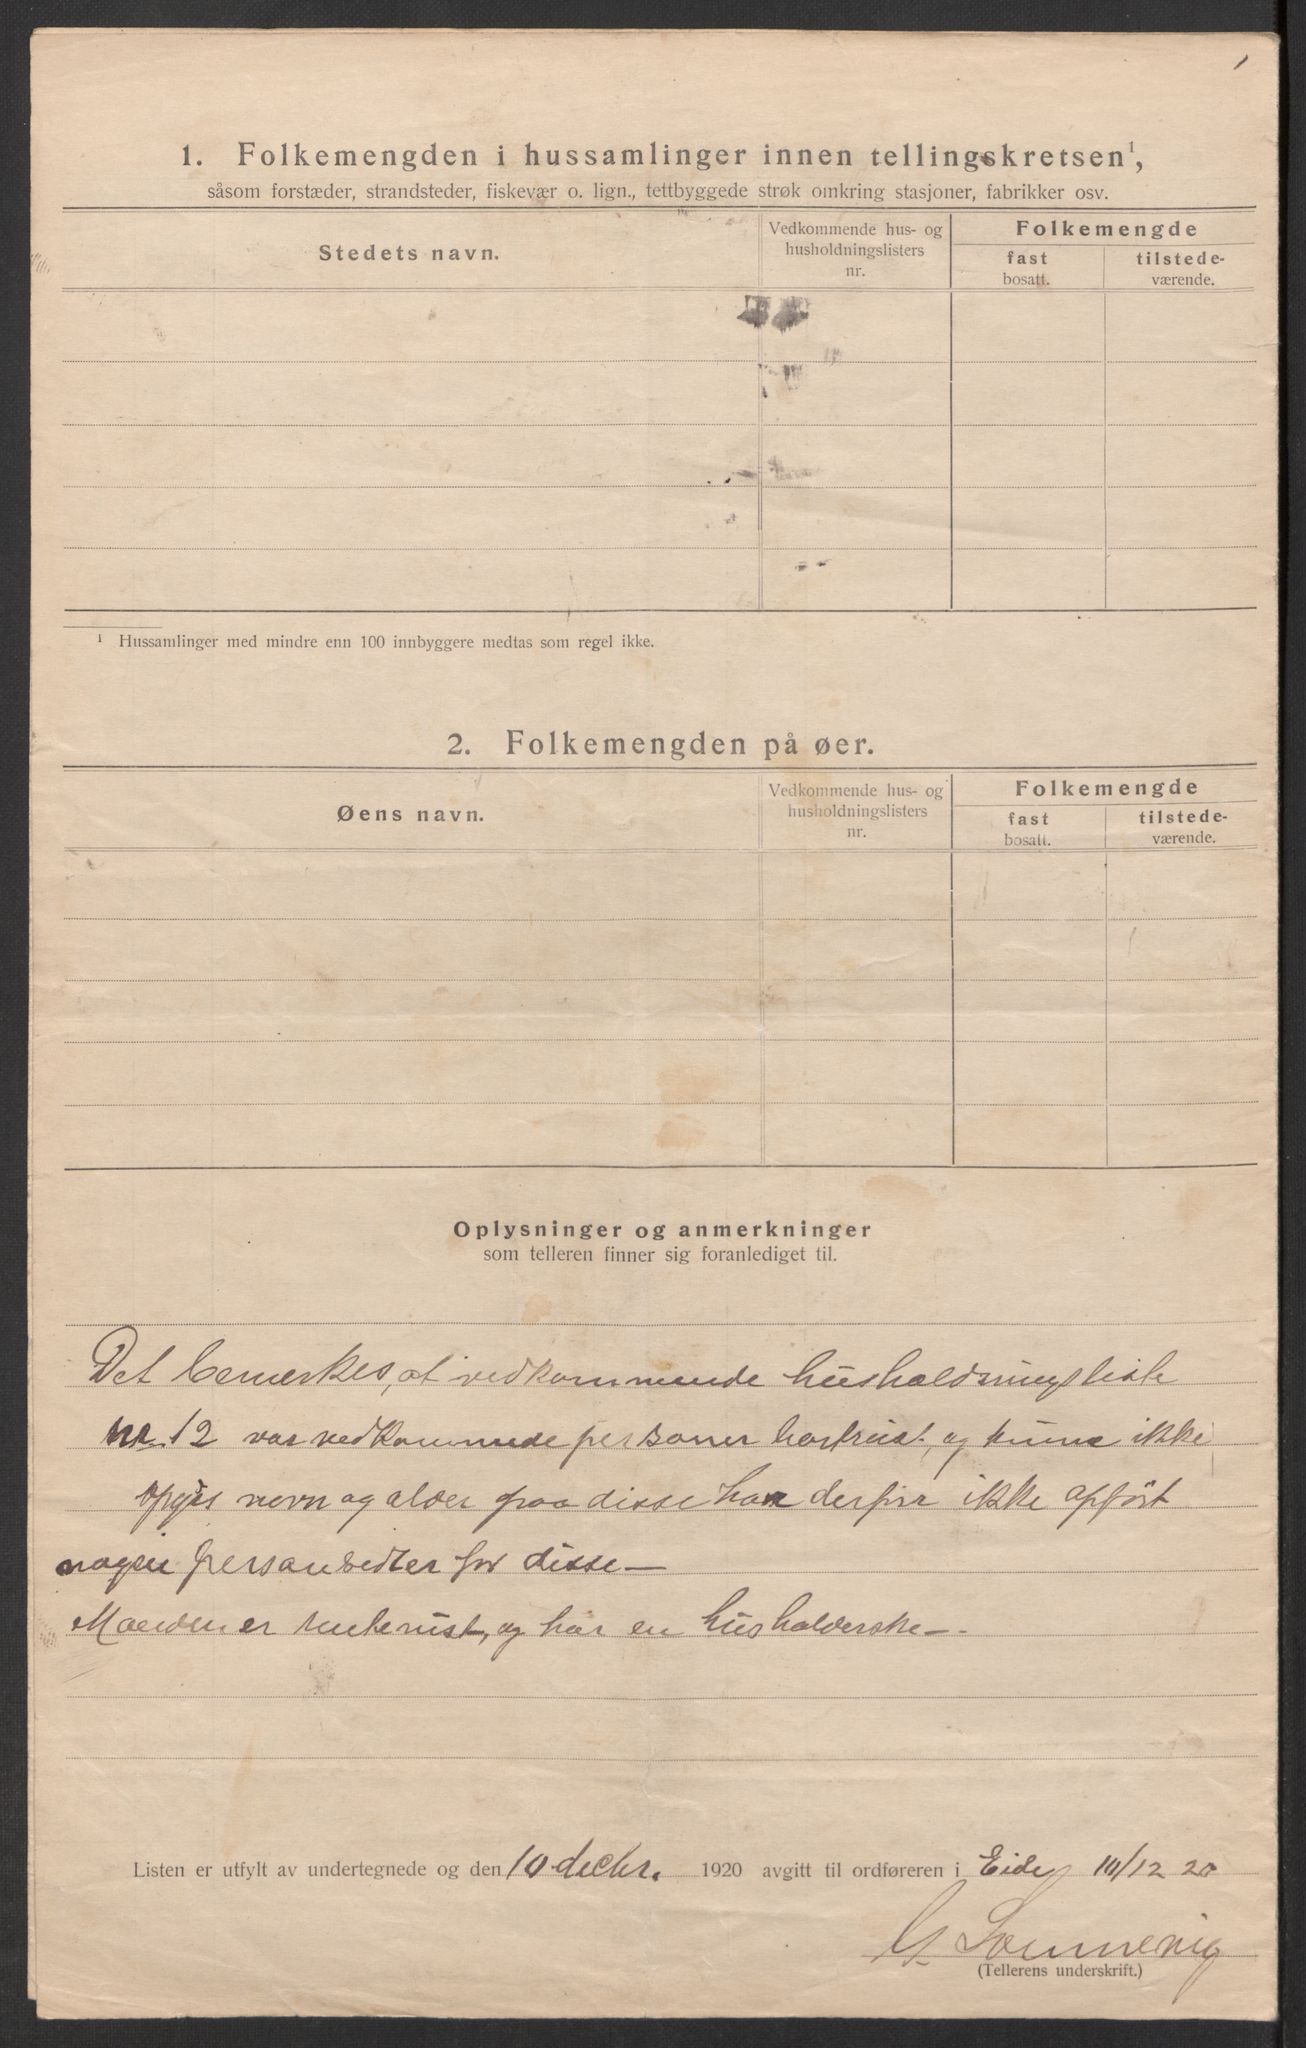 1. Folkemengden i hussamlinger innen tellingskretsen¹,
såsom forstæder, strandsteder, fiskevær o. lign., tettbyggede strøk omkring stasjoner, fabrikker osv.
Stedets navn.
Vedkommende hus- og
husholdningslisters
nr.
Folkemengde
fast
bosatt.
tilstede-
værende.
¹ Hussamlinger med mindre enn 100 innbyggere medtas som regel ikke.
2. Folkemengden på øer.
Øens navn.
Vedkommende hus- og
husholdningslisters
nr.
Folkemengde
fast
bosatt.
tilstede-
værende.
Oplysninger og anmerkninger
som telleren finner sig foranlediget til.
Det bemerkes, at vedkommende husholdningsliste
nr. 12 var vedkommende personer bortreist, og kunne ikke
opgis navn og alder paa disse har derfor ikke opført
nogen personsedler for disse—
Manden er rentenist, og har en husholderske—.
Listen er utfylt av undertegnede og den 10 decbr. 1920 avgitt til ordføreren i Eide 10/12 20
G. Sommevig
(Tellerens underskrift.)